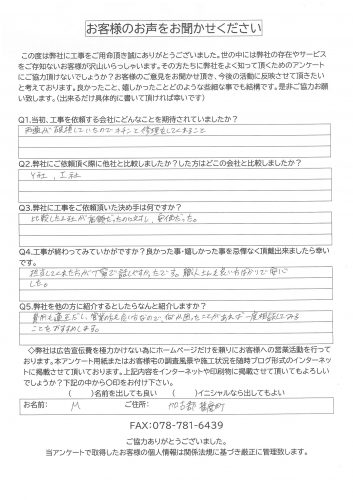 お客様のお声をお聞かせください
この度は弊社に工事をご用命頂き誠にありがとうございました。世の中には弊社の存在やサービス
をご存知ないお客様が沢山いらっしゃいます。その方たちに弊社をよく知って頂くためのアンケート
にご協力頂けないでしょうか？お客様のご意見をお聞かせ頂き、今後の活動に反映させて頂きたい
と考えております。良かったこと、嬉しかったことどのような些細な事でも結構です。是非ご協力お願
い致します。(出来るだけ具体的に書いて頂ければ幸いです)
Q1.当初、工事を依頼する会社にどんなことを期待されていましたか？
雨漏が破損していたのでカチンと修理をしてくれること
Q2.弊社にご依頼頂く際に他社と比較しましたか？した方はどこの会社と比較しましたか？
Y社、I社
Q3.弊社に工事をご依頼頂いた決め手は何ですか？
比較した2社が高額だったのに対し、安価だった。
Q4.工事が終わってみていかがですか？良かった事・嬉しかった事を忌憚なく頂戴出来ましたら幸い
です。
担当してくれた方が丁寧で話しやすかったです。職人さんも良い方ばかりで安心
した。
Q5.弊社を他の方に紹介するとしたらなんと紹介しますか？
費用も適正だし、営業の方も良い方なので、何か困ったことがあれば一度相談してみる
ことをすすめします。
◇弊社は広告宣伝費を極力かけない為にホームページだけを頼りにお客様への営業活動を行って
おります。本アンケート用紙またはお客様宅の調査風景や施工状況を随時ブログ形式のインターネット
に掲載させて頂いております。上記内容をインターネットや印刷物に掲載させて頂いてもよろしい
でしょうか？下記の中から〇印をお付け下さい。
( )名前を出しても良い ( )イニシャルなら出してもよい
お名前: M ご住所: 加古郡播磨町
FAX:078-781-6439
ご協力ありがとうございました。
当アンケートで取得したお客様の個人情報は関係法規に基づき厳正に管理致します。